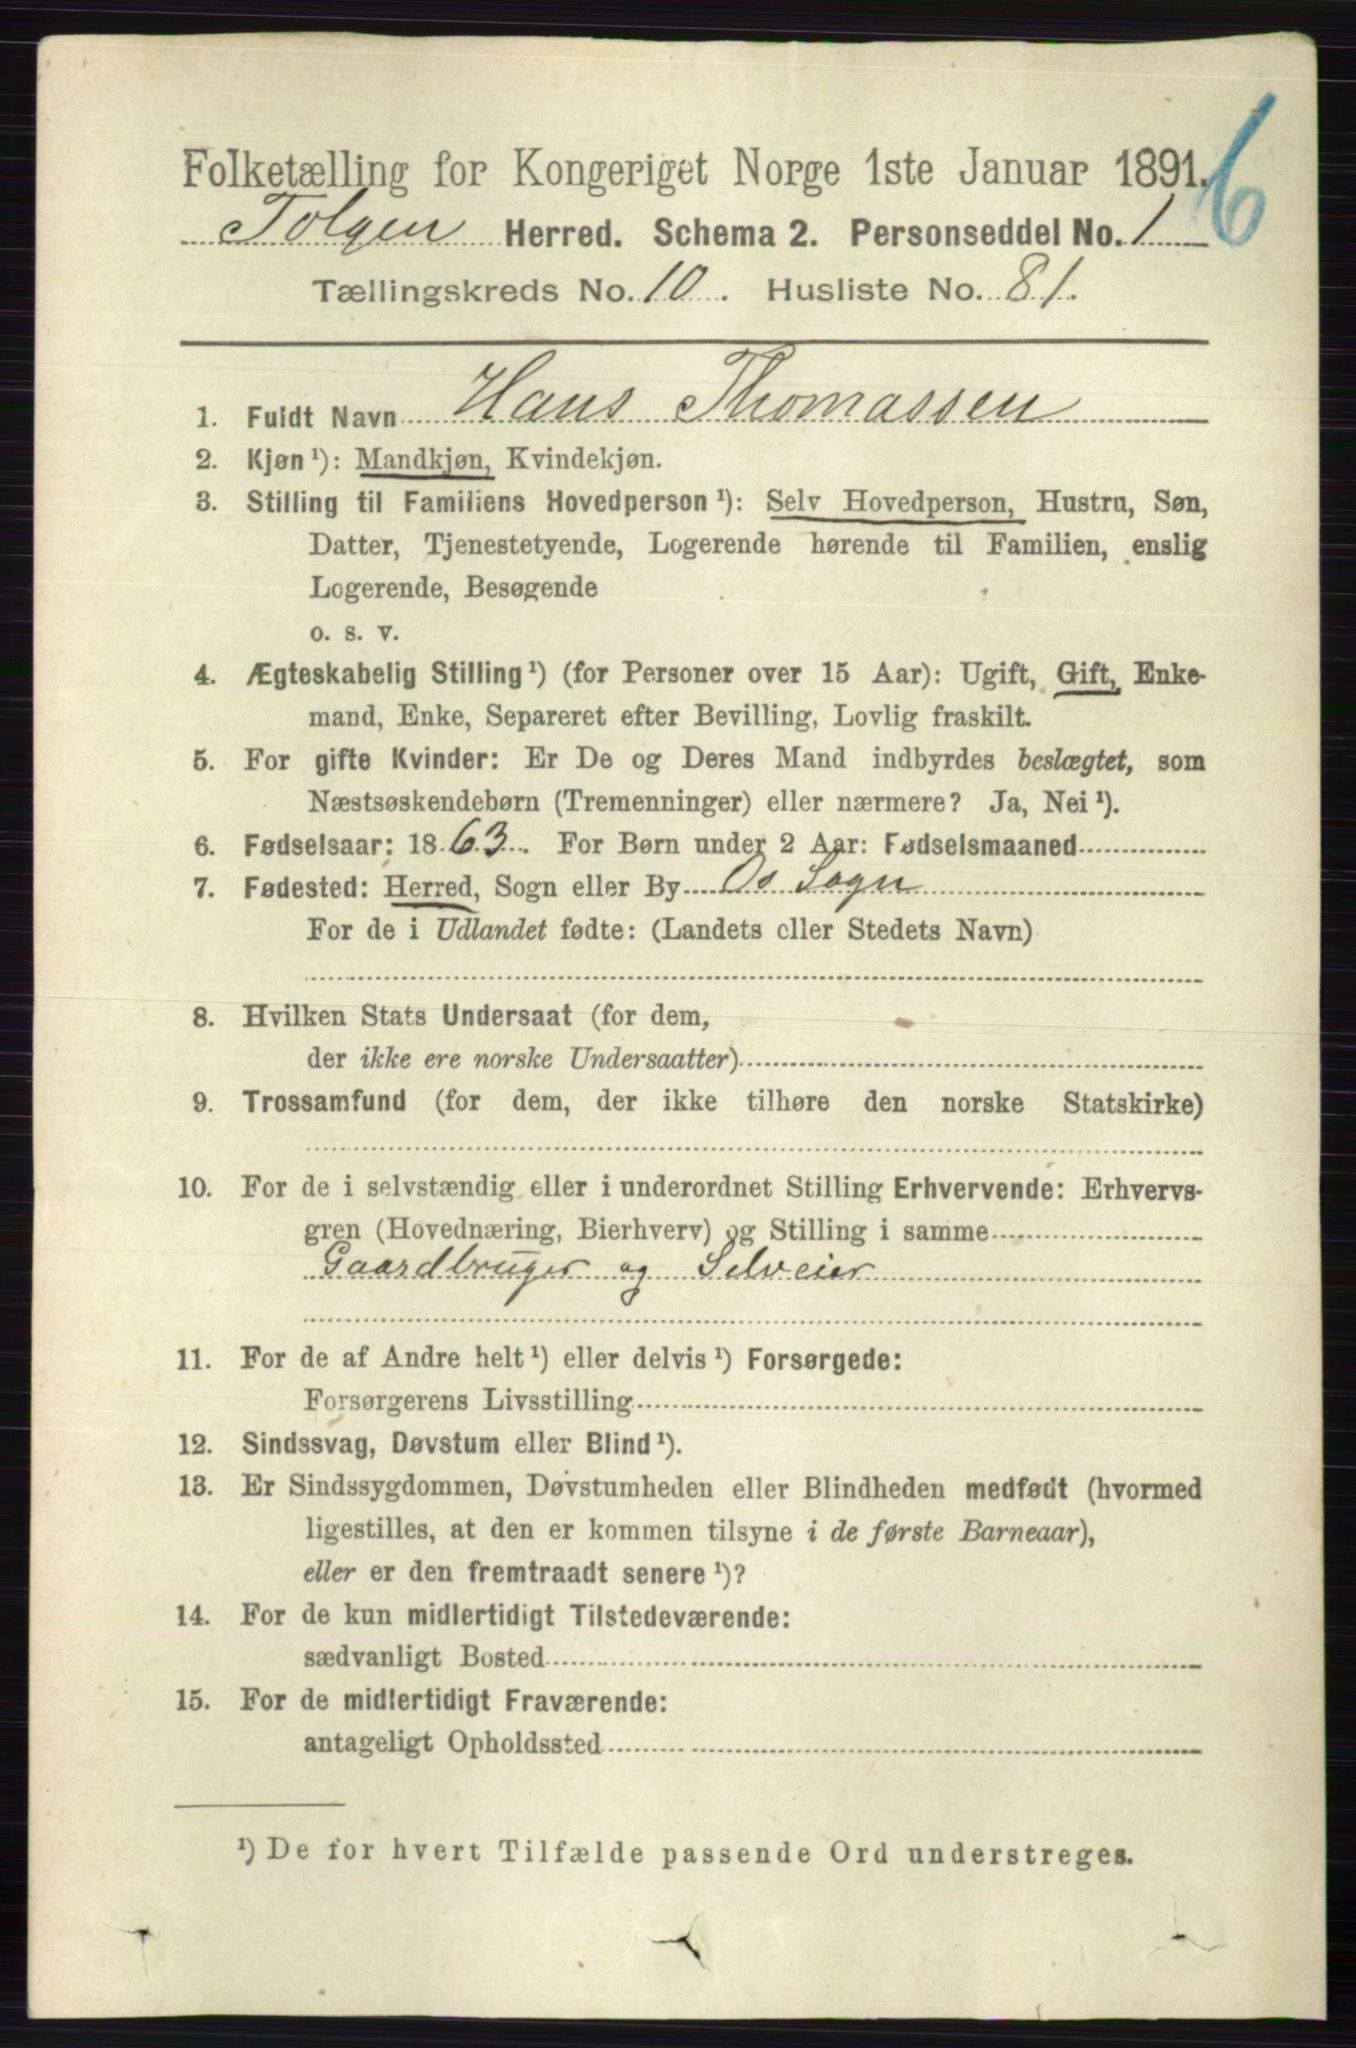 6
Folketælling for Kongeriget Norge 1ste Januar 1891.
Tolgen Herred. Schema 2. Personseddel No. 1
Tællingskreds No. 10. Husliste No. 81.
1. Fuldt Navn Hans Thomassen
2. Kjøn ¹): Mandkjøn, Kvindekjøn.
3. Stilling til Familiens Hovedperson ¹): Selv Hovedperson, Hustru, Søn,
Datter, Tjenestetyende, Logerende hørende til Familien, enslig
Logerende, Besøgende
o. s. v.
4. Ægteskabelig Stilling ¹) (for Personer over 15 Aar): Ugift, Gift, Enke-
mand, Enke, Separeret efter Bevilling, Lovlig fraskilt.
5. For gifte Kvinder: Er De og Deres Mand indbyrdes beslægtet, som
Næstsøskendebørn (Tremenninger) eller nærmere? Ja, Nei ¹).
6. Fødselsaar: 1863. For Børn under 2 Aar: Fødselsmaaned
7. Fødested: Herred, Sogn eller By Os Sogn
For de i Udlandet fødte: (Landets eller Stedets Navn)
8. Hvilken Stats Undersaat (for dem,
der ikke ere norske Undersaatter)
9. Trossamfund (for dem, der ikke tilhøre den norske Statskirke)
10. For de i selvstændig eller i underordnet Stilling Erhvervende: Erhvervs-
gren (Hovednæring, Bierhverv) og Stilling i samme
Gaardbruger og Selveier
11. For de af Andre helt ¹) eller delvis ¹) Forsørgede:
Forsørgerens Livsstilling
12. Sindssvag, Døvstum eller Blind ¹).
13. Er Sindssygdommen, Døvstumheden eller Blindheden medfødt (hvormed
ligestilles, at den er kommen tilsyne i de første Barneaar),
eller er den fremtraadt senere ¹)?
14. For de kun midlertidigt Tilstedeværende:
sædvanligt Bosted
15. For de midlertidigt Fraværende:
antageligt Opholdssted
¹) De for hvert Tilfælde passende Ord understreges.